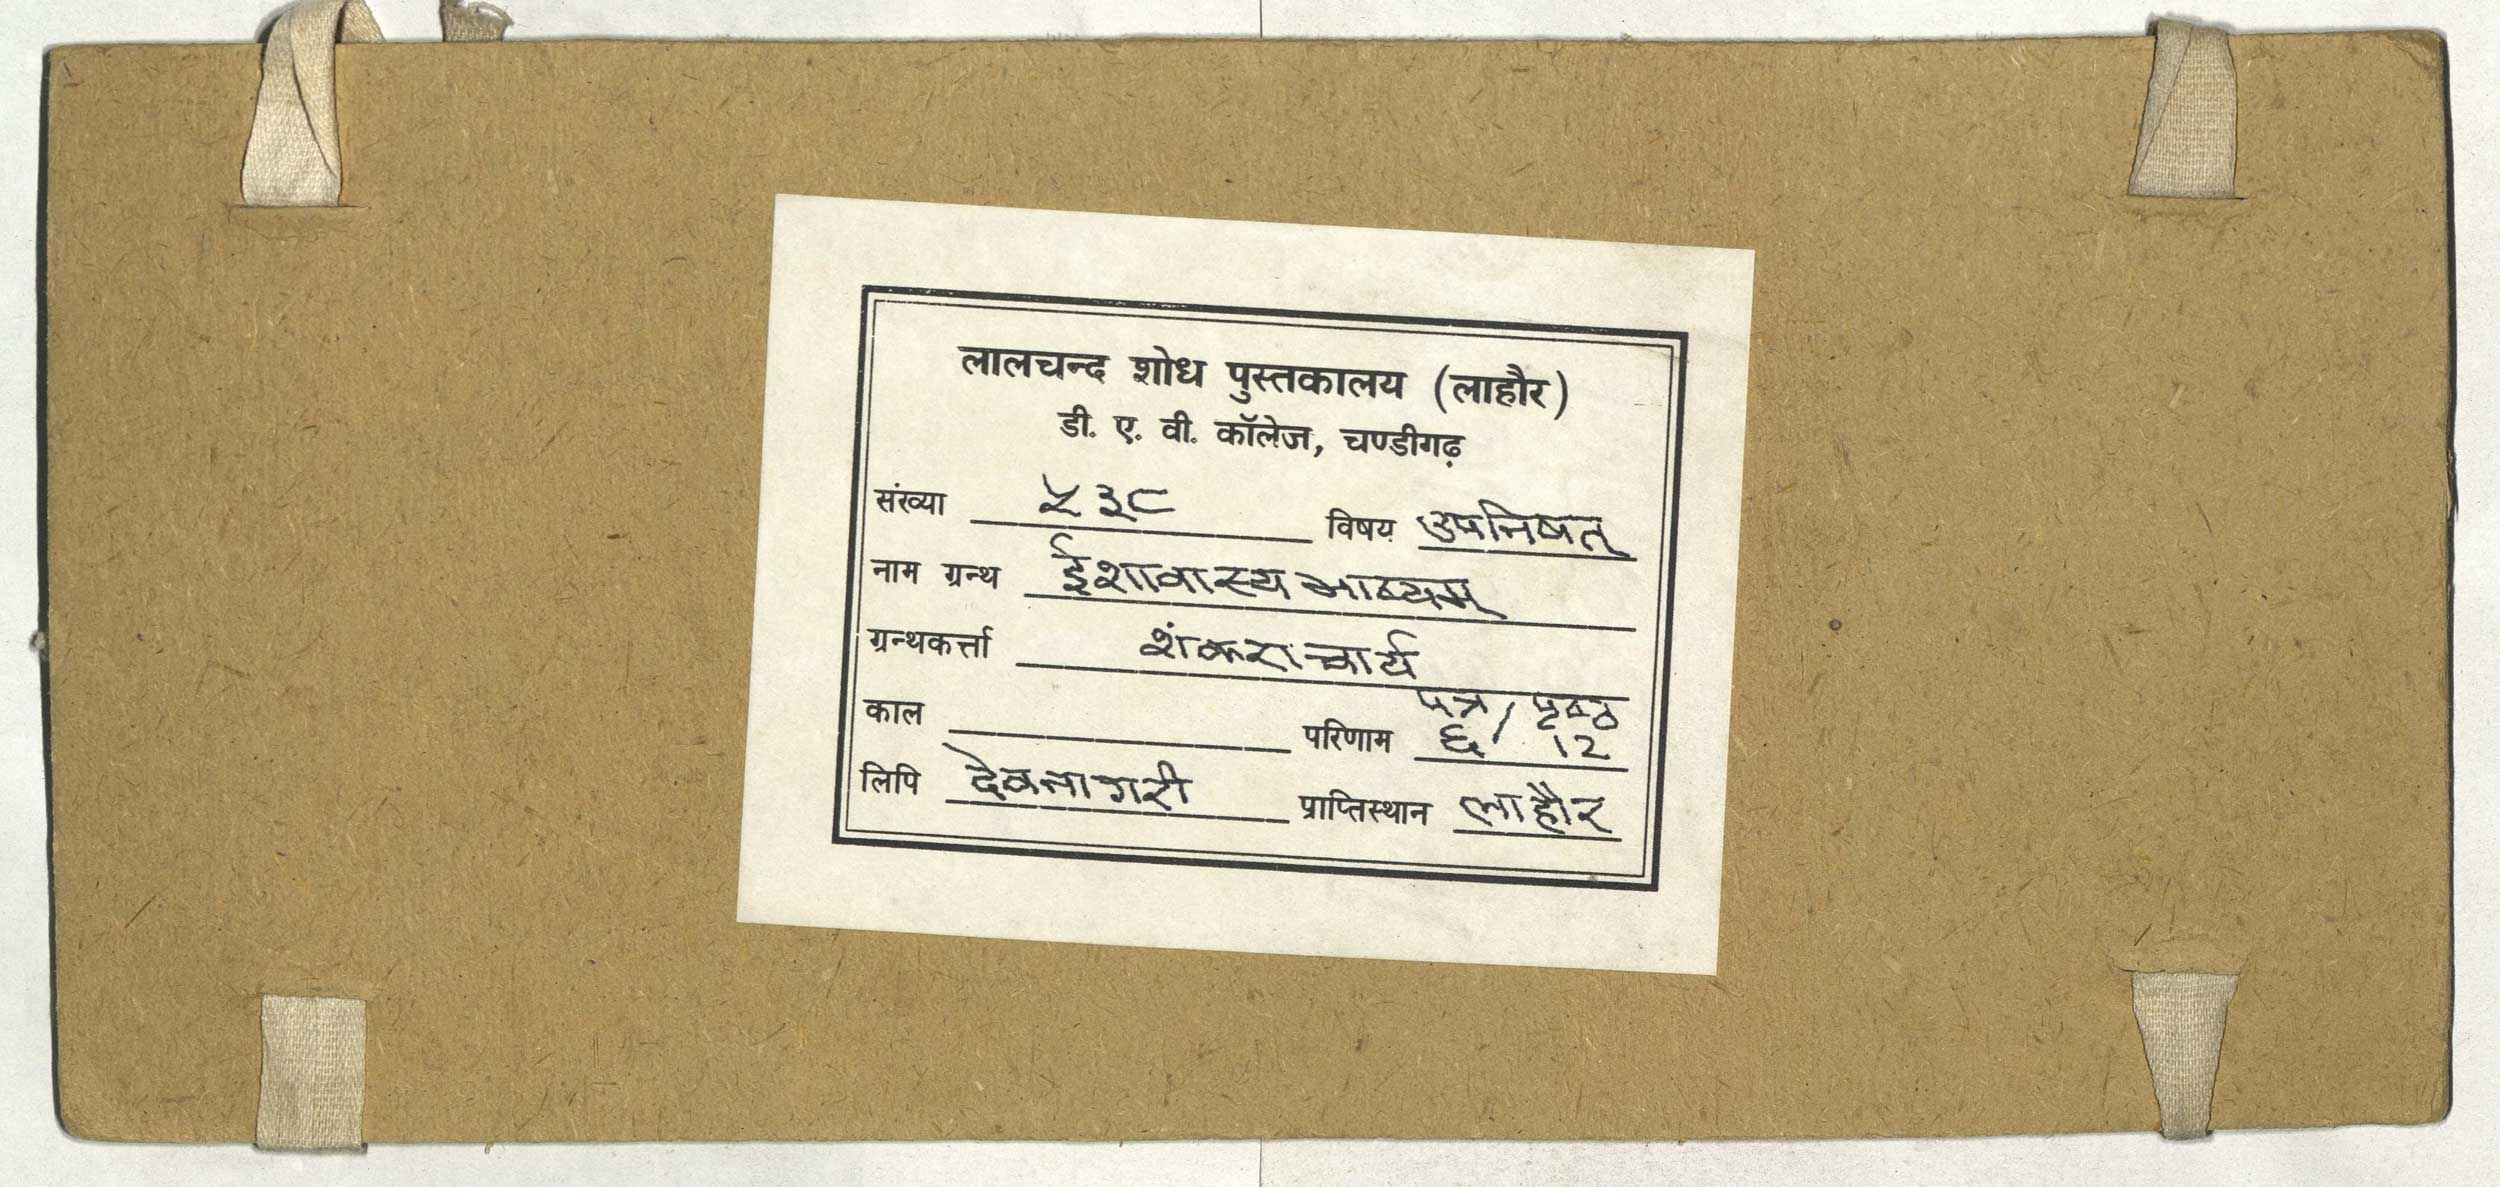 लालचन्द शोध पुस्तकालय (लाहौर)
डी. ए. वी. कॉलेज, चण्डीगढ़
संख्या ५३८ विषय उपनिषत्
नाम ग्रन्थ ईशावास्य भाष्यम्
ग्रन्थकर्त्ता शंकराचार्य
काल परिणाम पत्र / पृष्ठ ६ / 12
लिपि देवनागरी प्राप्तिस्थान लाहौर